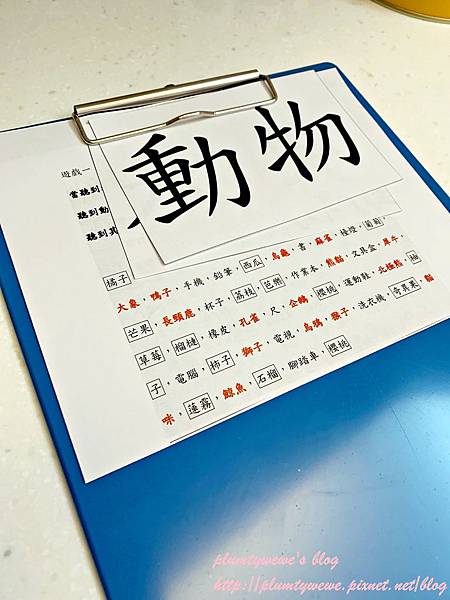 遊戲一
當聽到
聽到動
聽到其
動物
橘子
大象，鴨子，手機，鉛筆，西瓜，烏龜，書，麻雀，檯燈，葡萄，
芒果，長頸鹿，杯子，荔枝，芭樂，作業本，熊貓，文具盒，犀牛，
草莓，榴槤，橡皮，孔雀，尺，企鵝，櫻桃，運動鞋，北極熊，柚
子，電腦，柿子，獅子，電視，烏鴉，猴子，洗衣機，奇異果，貓
咪，蓮霧，鯨魚，石榴，腳踏車，櫻桃
plumtywewe's blog
http://plumtywewe.pixnet.net/blog